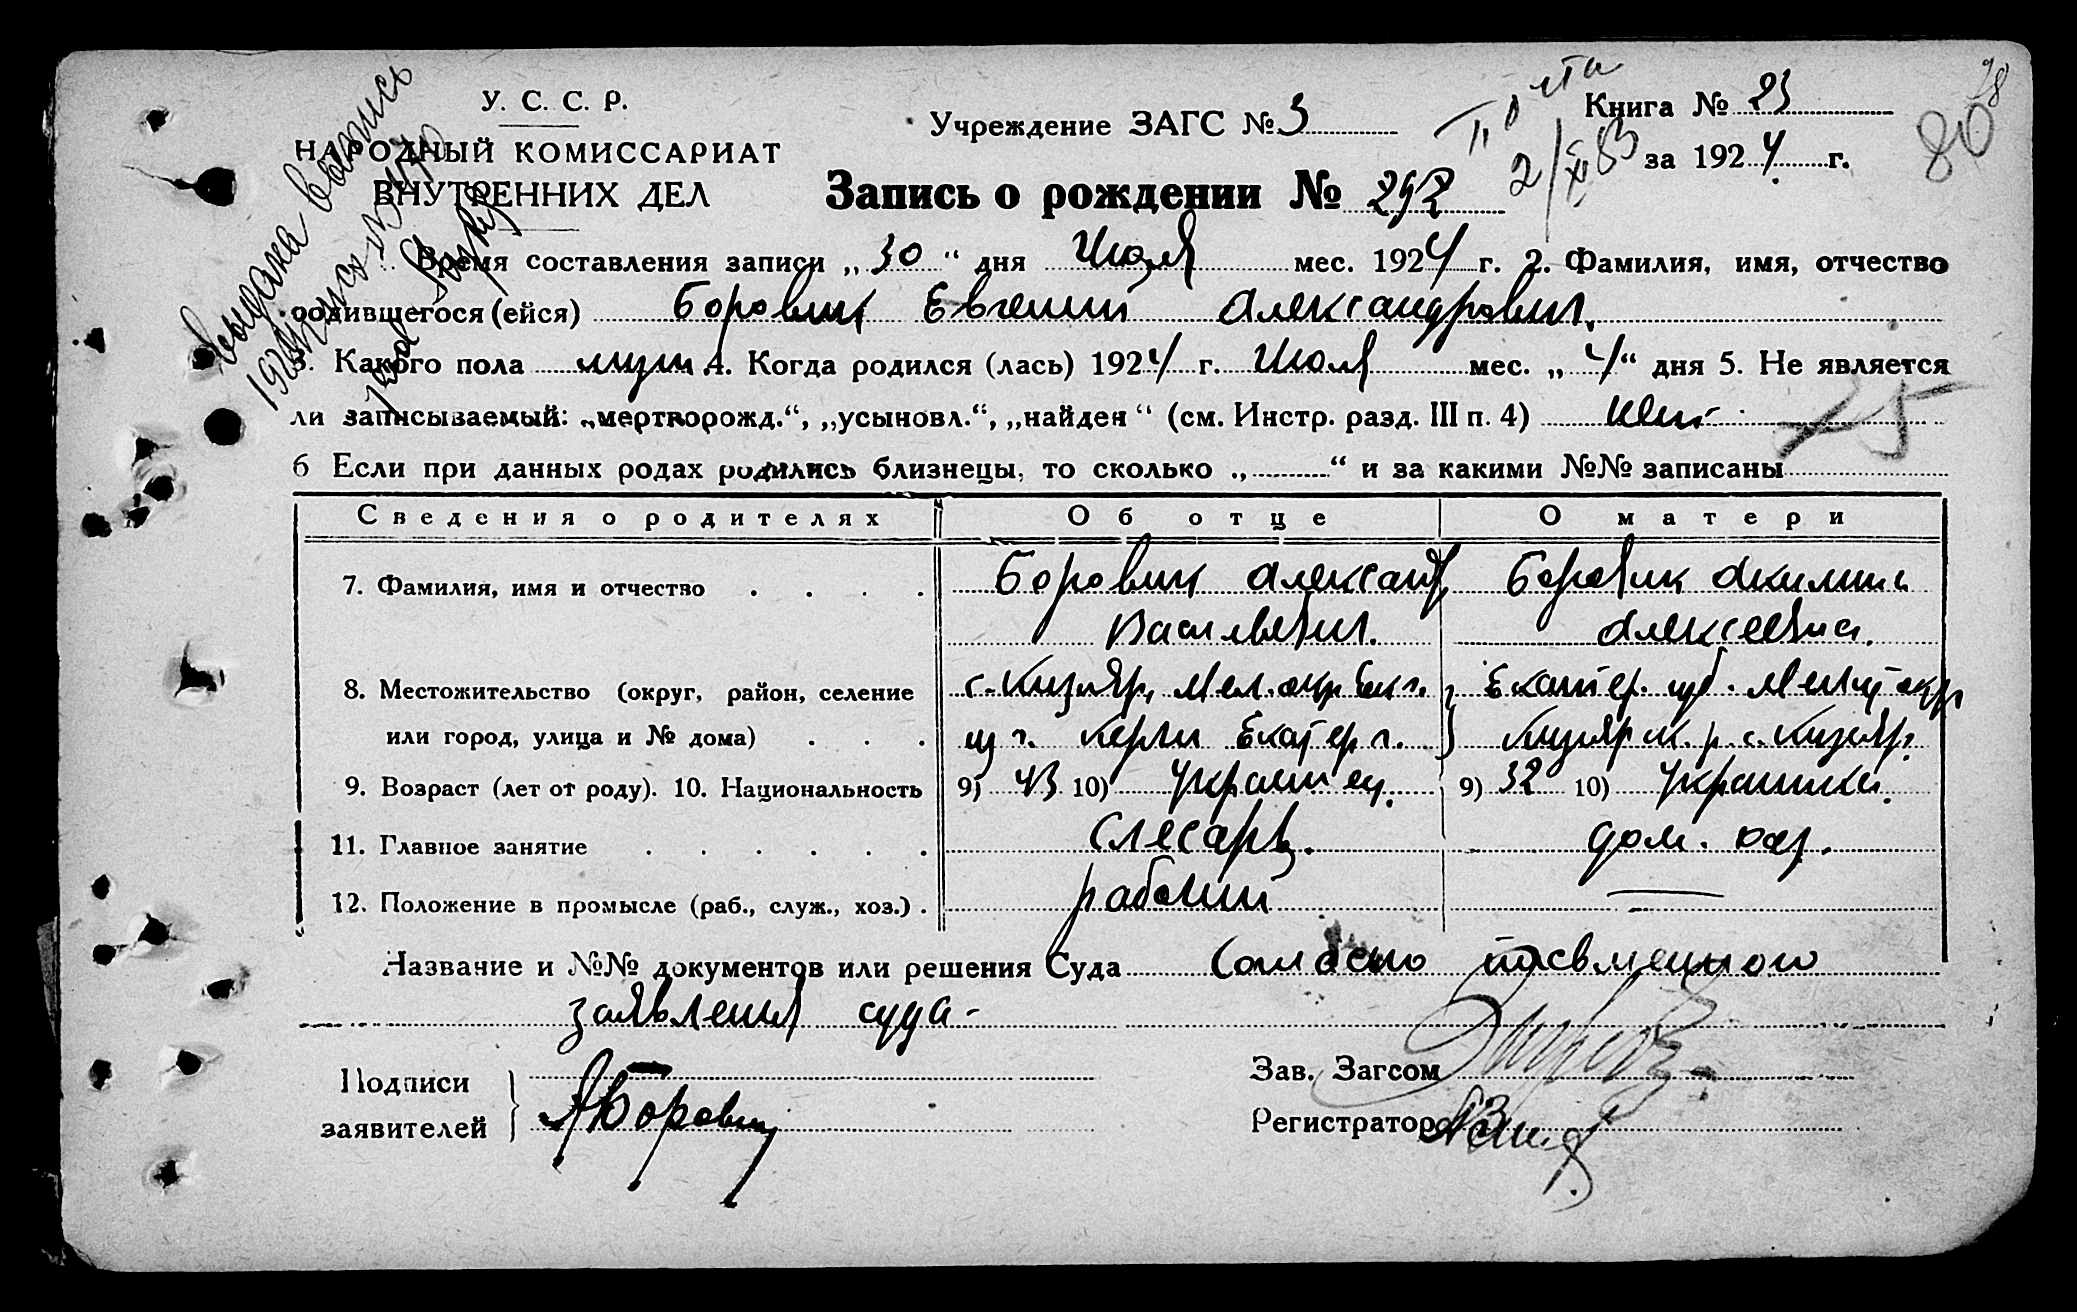 У. С. С. Р.
НАРОДНЫЙ КОМИССАРИАТ
ВНУТРЕННИХ ДЕЛ
Выдана выпись
Учреждение ЗАГС № 3
Книга № 23
за 1924 г.
80
28
Запись о рождении № 292
2/XI 83
Время составления записи „30“ дня Июля мес. 1924 г. 2. Фамилия, имя, отчество
родившегося (ейся) Боровик Евгений Александрович.
3. Какого пола муж 4. Когда родился (лась) 1924 г. Июля мес. „4“ дня 5. Не является
ли записываемый: „мертворожд.“, „усыновл.“, „найден“ (см. Инстр. разд. III п. 4) нет
25
6 Если при данных родах родились близнецы, то сколько „ “ и за какими №№ записаны
Сведения о родителях Об отце О матери
7. Фамилия, имя и отчество Боровик Александр Боровик Акилина
Васильевич. Алексеевна.
8. Местожительство (округ, район, селение с. Кизляр, Мел. окр. Екат. губ.
или город, улица и № дома) с. Кизляр.
9. Возраст (лет от роду). 10. Национальность 9) 43 10) Украинец. 9) 32 10) Украинка.
11. Главное занятие слесарь. дом. хоз.
12. Положение в промысле (раб., служ., хоз.) рабочий —
Название и №№ документов или решения Суда Согласно письменного
заявления суда -
Подписи
заявителей
АБорови
Зав. Загсом
Регистратор